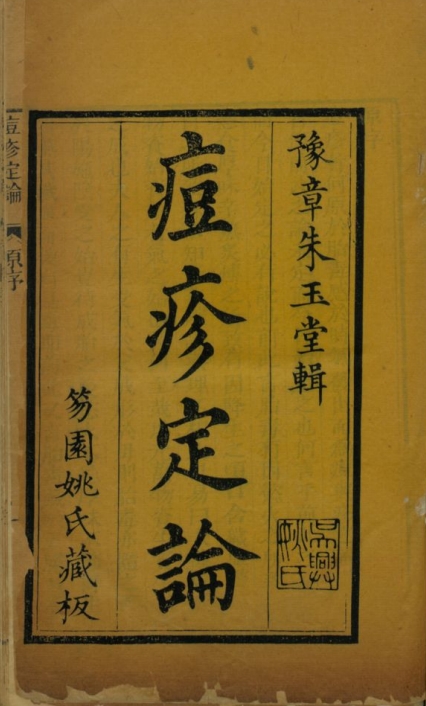 豫章朱玉堂輯
痘疹定論
芴園姚氏藏板
吳興姚氏
痘疹定論
原序